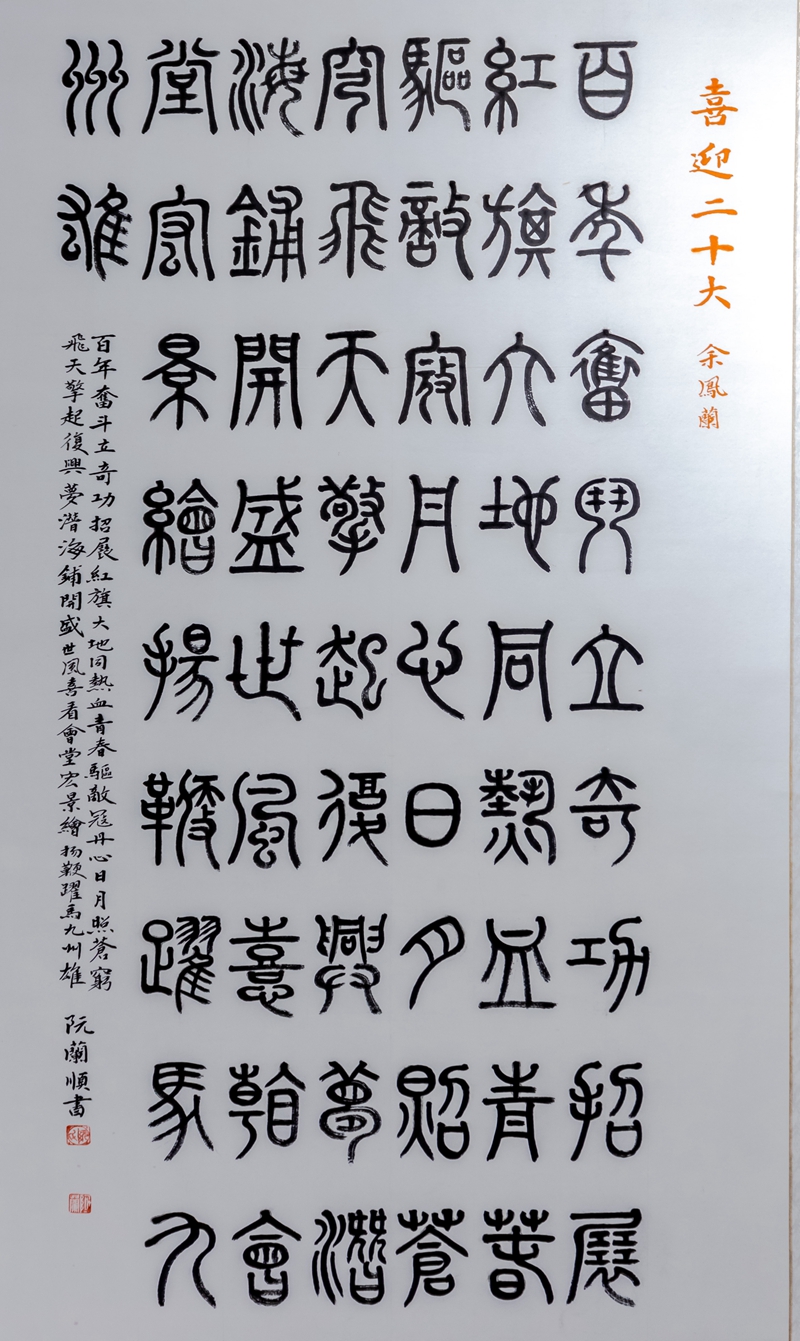 喜迎二十大 余鳳蘭
百年奮鬥立奇功招展
紅旗大地同熱血青春
驅敵寇丹心日月照蒼
穹飛天擎起復興夢潛
海鋪開盛世風喜看會
堂宏景繪揚鞭躍馬九
州雄
百年奮斗立奇功招展紅旗大地同熱血青春驅敵寇丹心日月照蒼窮
飛天擎起復興夢潛海鋪開盛世風喜看會堂宏景繪揚鞭躍馬九州雄 阮蘭順書